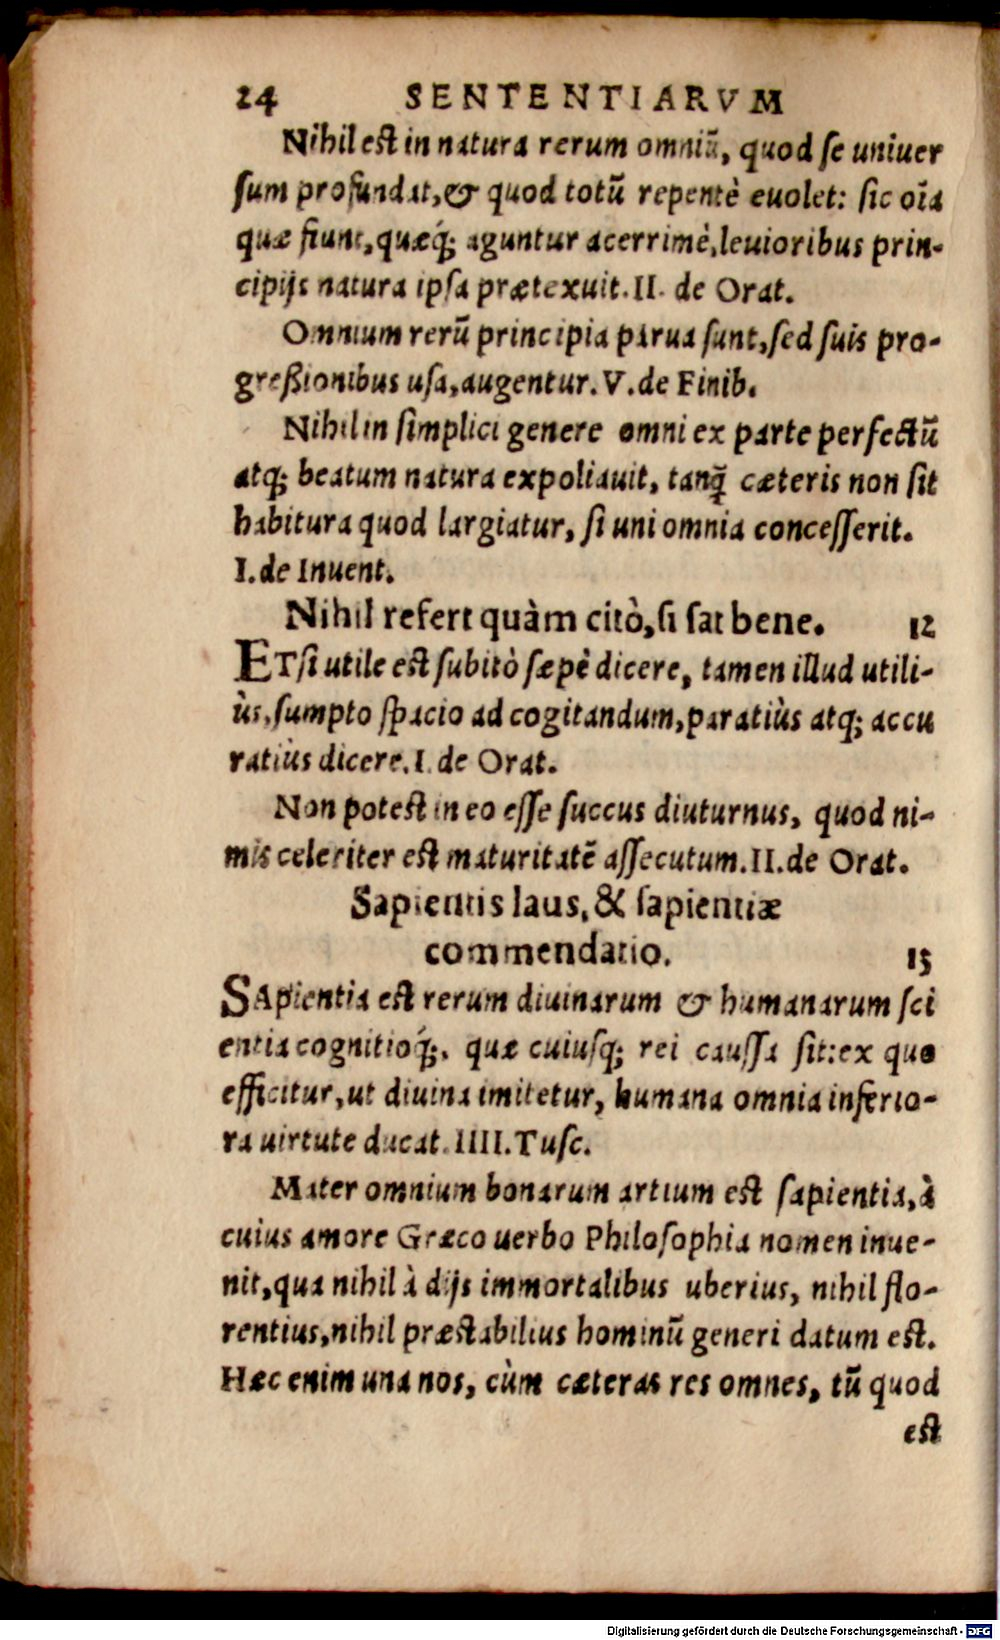 24 SENTENTIARVM
Nihil est in natura rerum omniū, quod se uniuer
sum profundat, & quod totū repentè euolet: sic oīa
quæ fiunt, quæq́; aguntur acerrimè, leuioribus prin-
cipijs natura ipsa prætexuit. II. de Orat.
Omnium rerū principia parua sunt, sed suis pro-
greßionibus usa, augentur. V. de Finib.
Nihil in simplici genere omni ex parte perfectū
atq; beatum natura expoliauit, tanq̄ cæteris non sit
habitura quod largiatur, si uni omnia concesserit.
I. de Inuent.
Nihil refert quàm citò, si sat bene. 12
ETsi utile est subitò sæpè dicere, tamen illud utili-
ùs, sumpto spacio ad cogitandum, paratiùs atq; accu
ratiùs dicere. I. de Orat.
Non potest in eo esse succus diuturnus, quod ni-
mis celeriter est maturitatē assecutum. II. de Orat.
Sapientis laus, & sapientiæ
commendatio. 13
SApientia est rerum diuinarum & humanarum sci
entia cognitioq́;, quæ cuiusq; rei caussa sit: ex quo
efficitur, ut diuina imitetur, humana omnia inferio-
ra uirtute ducat. IIII. Tusc.
Mater omnium bonarum artium est sapientia, à
cuius amore Græco uerbo Philosophia nomen inue-
nit, qua nihil à dijs immortalibus uberius, nihil flo-
rentius, nihil præstabilius hominū generi datum est.
Hæc enim una nos, cùm cæteras res omnes, tū quod
est
Digitalisierung gefördert durch die Deutsche Forschungsgemeinschaft - DFG